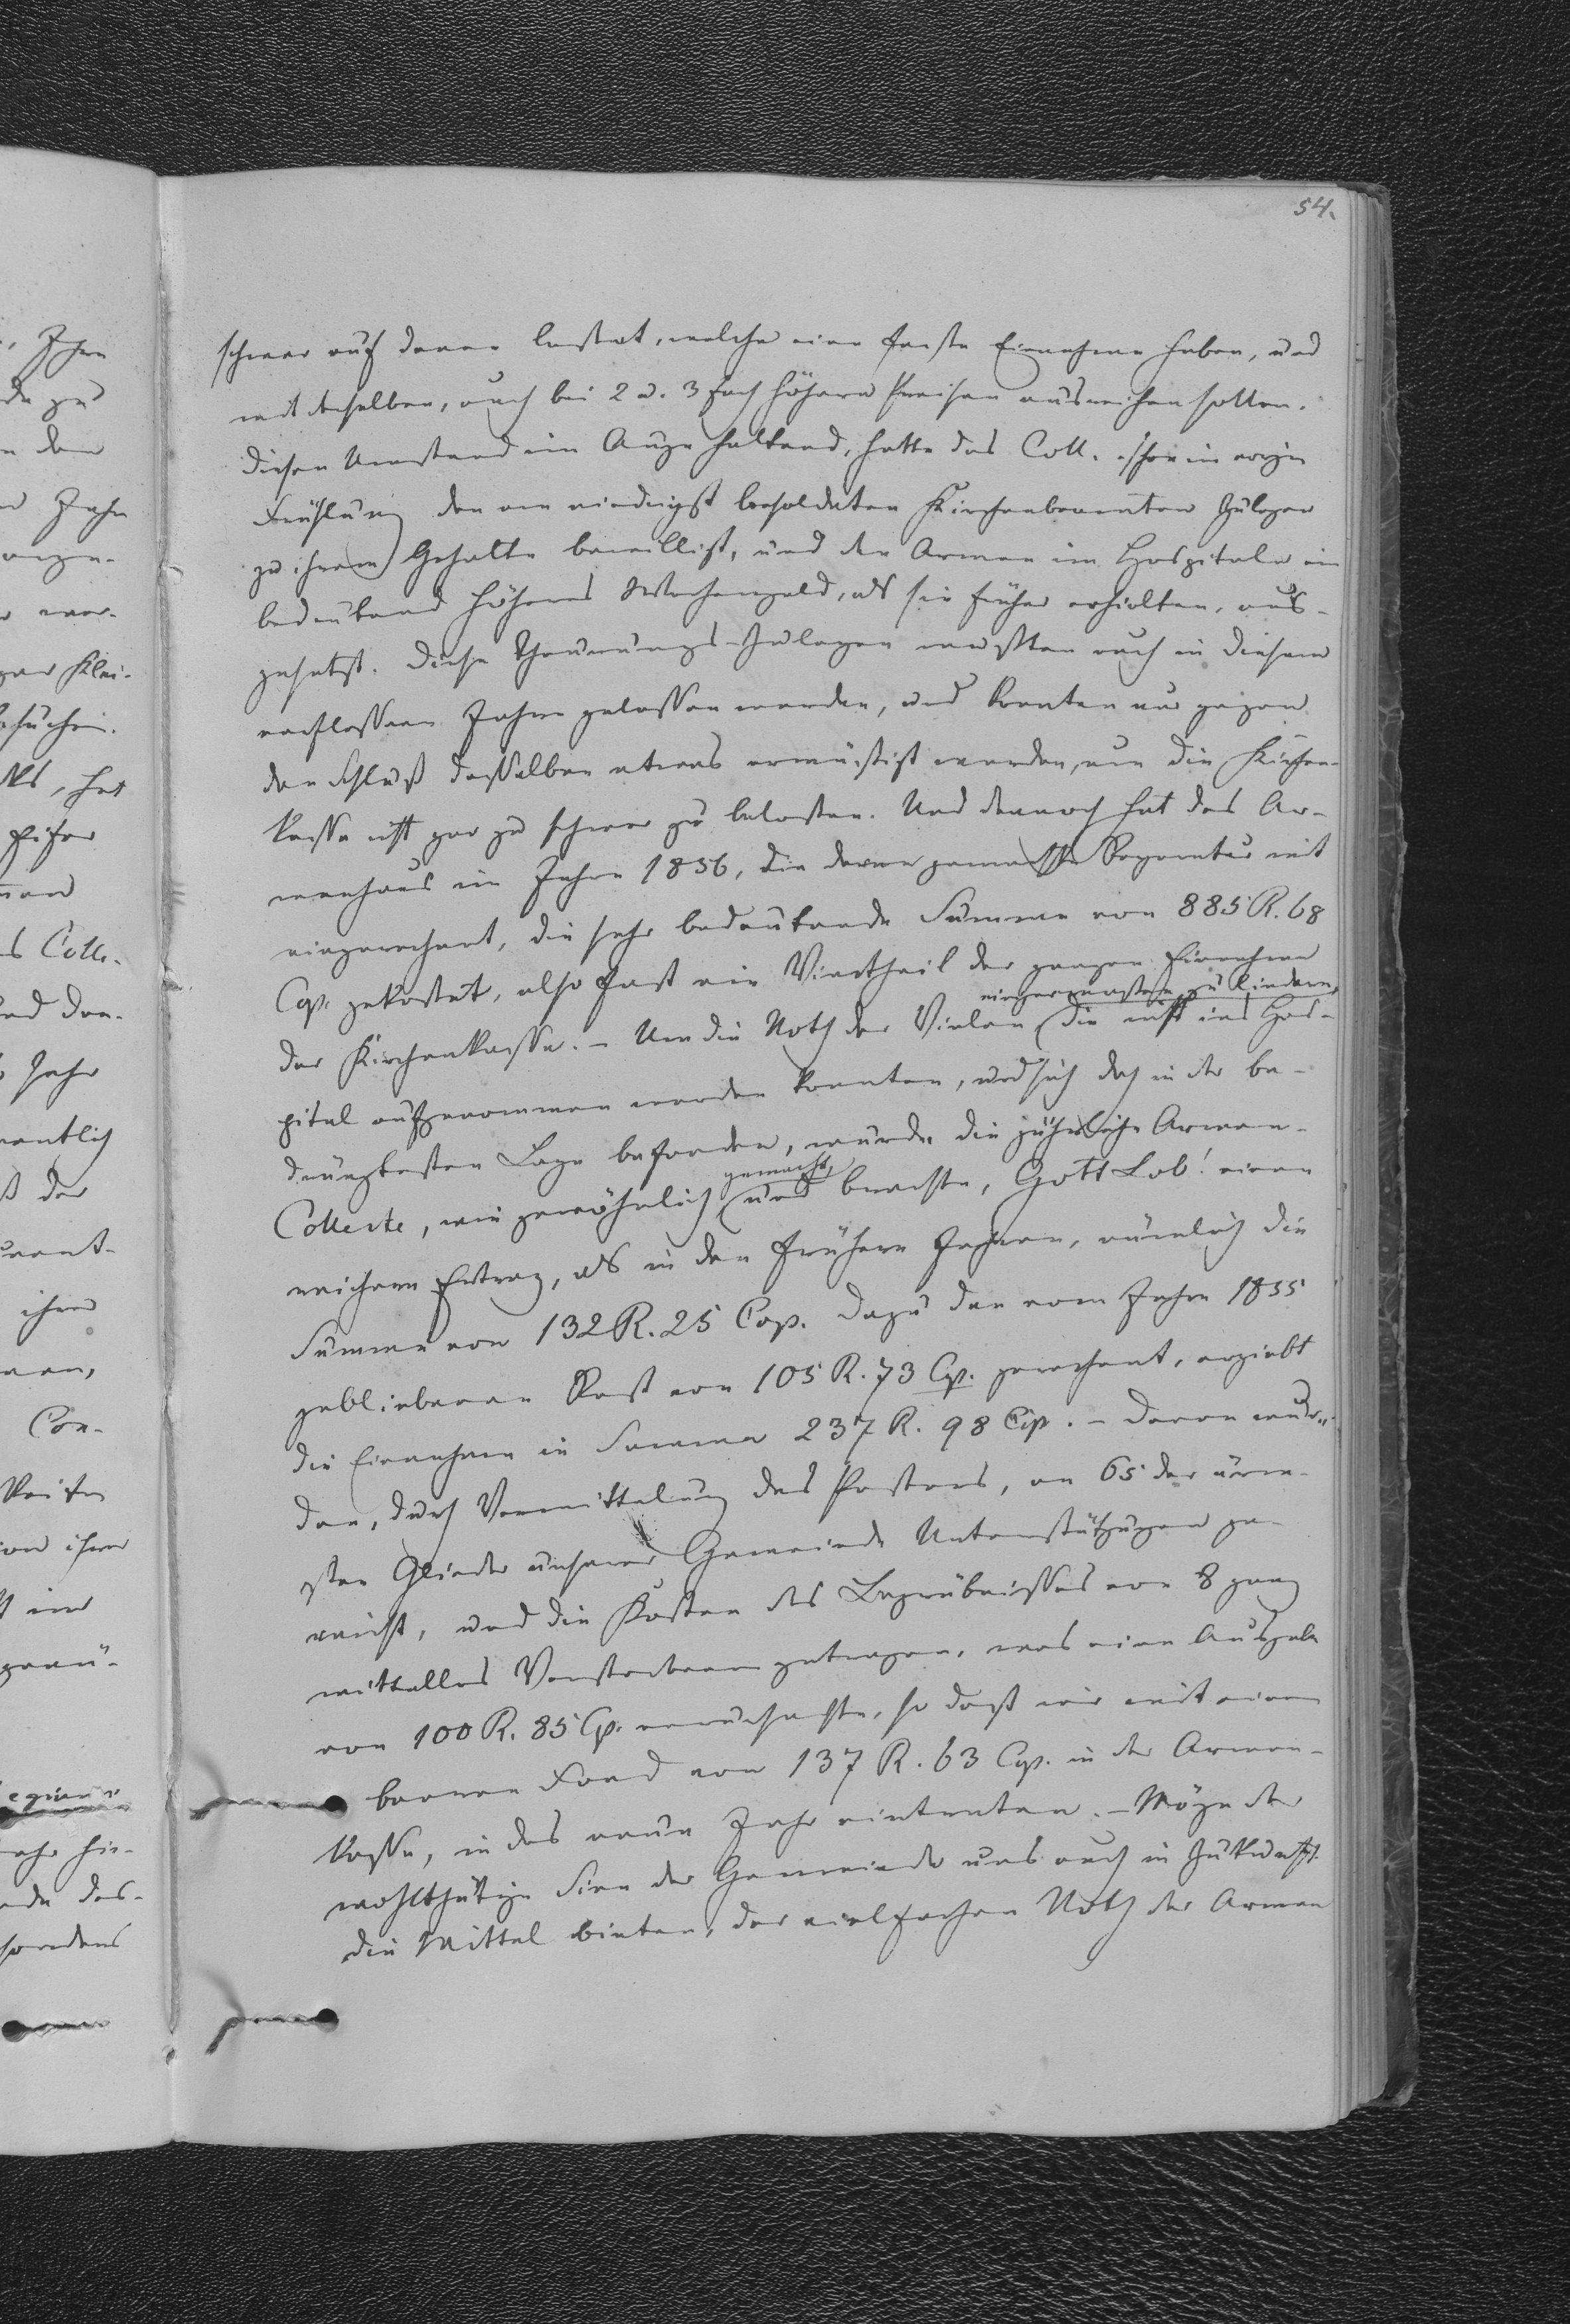 54.
schwer auf denen lastet, welche eine feste Einnahme haben, und
mit derselben, auch bei 2 u. 3 fach höhern Preisen ausreichen sollen.
Diesen Umstand im Auge haltend, hatte das Coll. schon im vorigen
Frühling den am niedrigst besoldeten Kirchenbeamten Zulagen
zu ihrem Gehalte bewilligt, und den Armen im Hospitale ein
bedeutend höheres Wochengeld, als sie früher erhielten, aus-
gesetzt. Diese Theuerungs-Zulagen mußten auch in diesem
verflossenen Jahre gelassen werden, und konnten nur gegen
den Schluß desselben etwas ermäßigt werden, um die Kirchen-
kasse nicht gar zu schwer zu belasten. Und dennoch hat das Ar-
menhaus im Jahre 1856, die daran gemachte Reparatur mit
eingerechnet, die sehr bedeutende Summe von 885 R. 68
Cp. gekostet, also fast ein Viertheil der ganzen Einnahme
einigermaßen zu lindern,
der Kirchenkasse. - Um die Noth der Vielen, die nicht ins Hos-
pital aufgenommen werden konnten, und sich doch in der be-
drängtesten Lage befanden, wurde die jährliche Armen-
gemacht,
Collecte, wie gewöhnlich und brachte, Gott Lob! einen
reichern Ertrag, als in den frühern Jahren, nämlich die
Summe von 132 R. 25 Cop. Dazu den vom Jahre 1855
gebliebenen Rest von 105 R. 73 Cp. gerechnet, ergiebt
die Einnahme in Summa 237 R. 98 Cop. - Davon wur-
den, durch Vermittelung des Pastors, an 65 der ärm-
sten Glieder unserer Gemeinde Unterstützungen ge-
reicht, und die Kosten des Begräbnisses von 8 ganz
mittellos Verstorbenen getragen, was eine Ausgabe
von 100 R. 85 Cp. verursachte, so daß wir mit einem
baaren Fond von 137 R. 63 Cop. in der Armen-
kasse, in das neue Jahr eintreten. - Möge der
wohlthätige Sinn der Gemeinde uns auch in Zukunft
die Mittel bieten, der vielfachen Noth der Armen